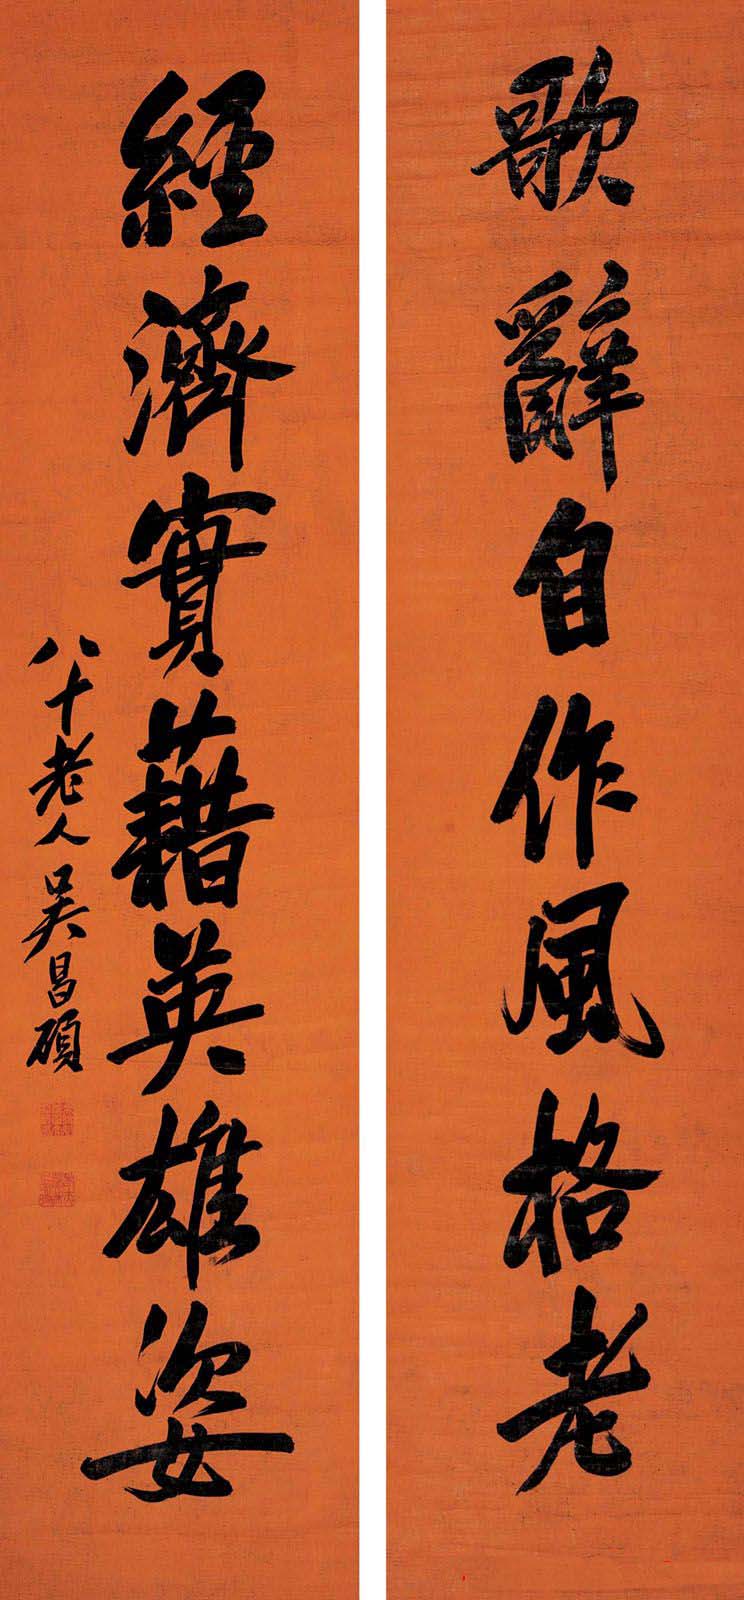 歌辭自作風格老
經濟實藉英雄姿
八十老人吳昌碩